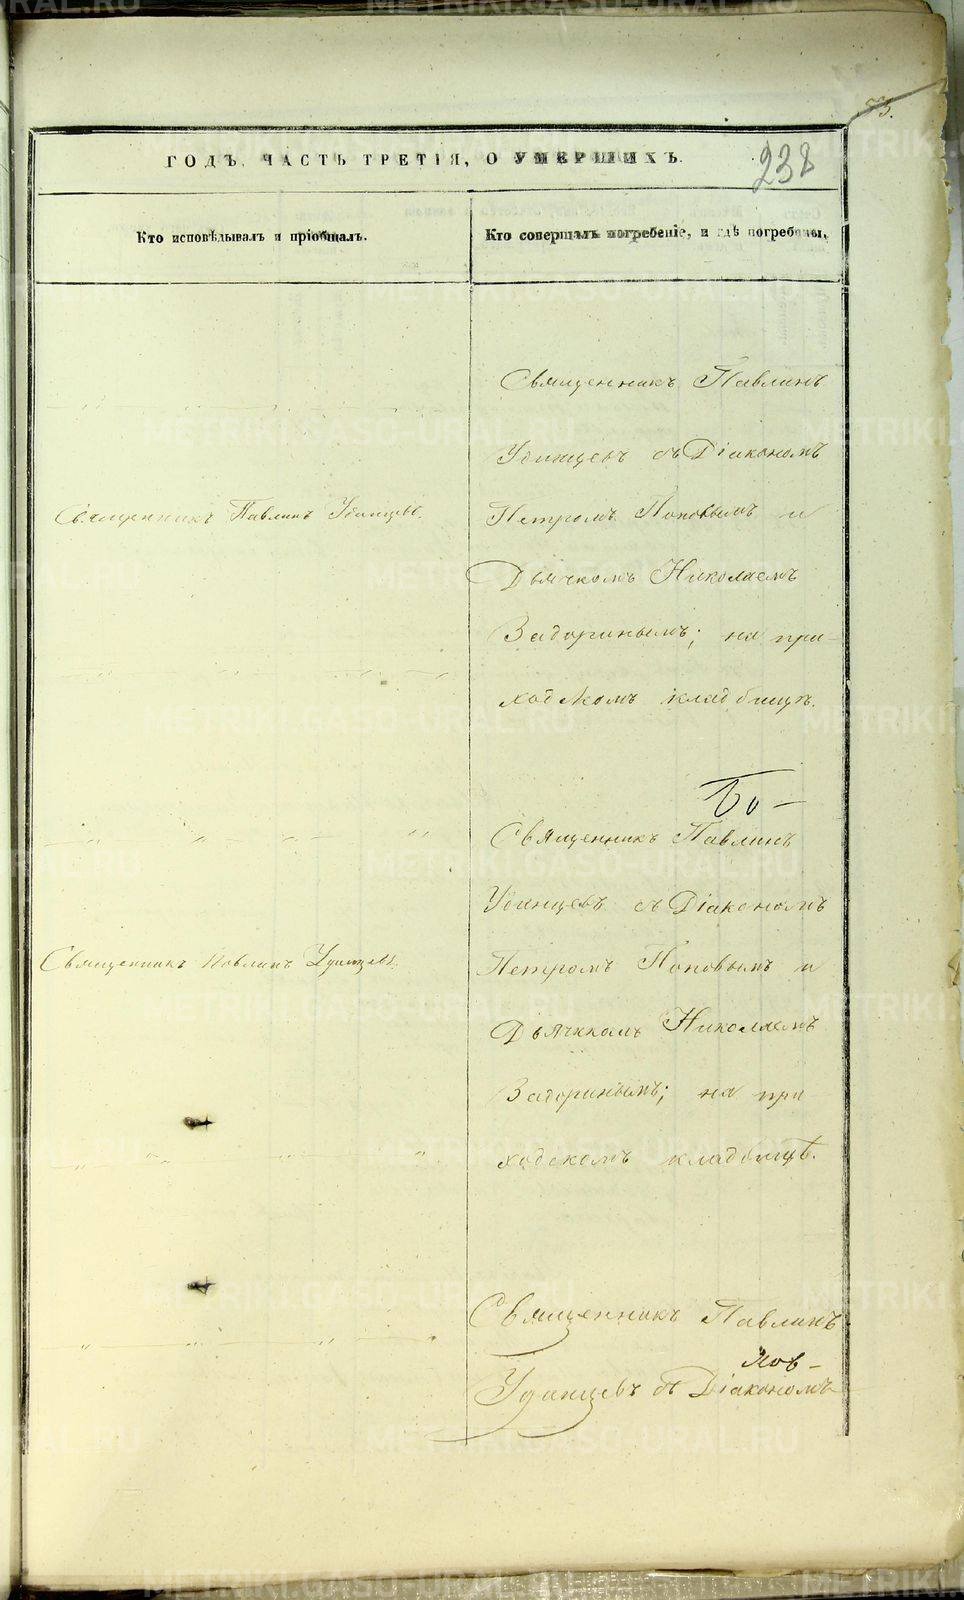 53.
ГОДЪ. ЧАСТЬ ТРЕТІЯ, О УМЕРШИХЪ.
238
Кто исповѣдывалъ и пріобщалъ.
Кто совершалъ погребеніе, и гдѣ погребены.
Священникъ Павлинъ
Удинцевъ съ Діакономъ
Священникъ Павлинъ Удинцевъ.
Петромъ Поповымъ и
Дьячкомъ Николаемъ
Задоринымъ; на при-
ходскомъ кладбищѣ.
Священникъ Павлинъ
Удинцевъ съ Діакономъ
Священникъ Павлинъ Удинцевъ.
Петромъ Поповымъ и
Дьячкомъ Николаемъ
Задоринымъ; на при
ходскомъ кладбищѣ.
Священникъ Павлинъ
Удинцевъ съ Діакономъ
METRIKI.GASO-URAL.RU